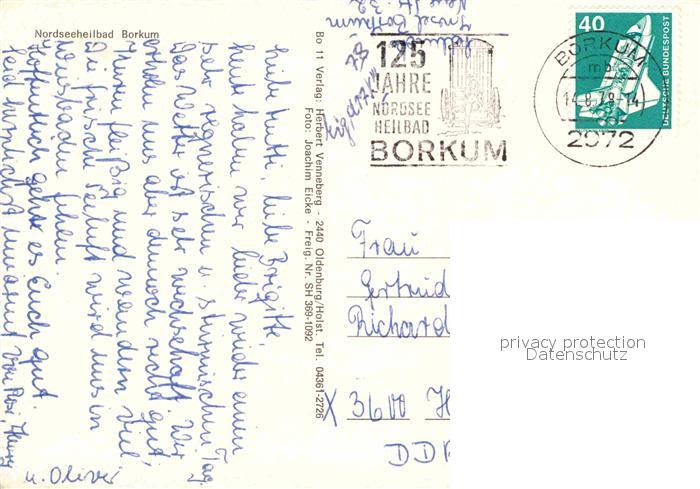 Nordseeheilbad Borkum
Liebe Mutti, liebe Brigitte,
heut haben wir leider wieder einen
sehr regnerischen u. stürmischen Tag.
Das Wetter ist sehr wechselhaft. Wir
erholen uns aber dennoch recht gut,
kuren fleißig und wandern viel,
Die frische Seeluft wird uns in
Wiesbaden fehlen.
Hoffentlich geht es Euch gut.
Seid herzlichst umarmt von Rosi, Heinz
u. Oliver
Bo 11 Verlag: Herbert Venneberg - 2440 Oldenburg/Holst. Tel. 04361-2726
Foto: Joachim Eicke - Freig. Nr. SH 389-1092
Insel Borkum
125
JAHRE
NORDSEE
HEILBAD
BORKUM
BORKUM
mb
14.8.78-14
2972
40
DEUTSCHE BUNDESPOST
Frau
Gertrud
Richard
X 3600 H
DDR
privacy protection
Datenschutz